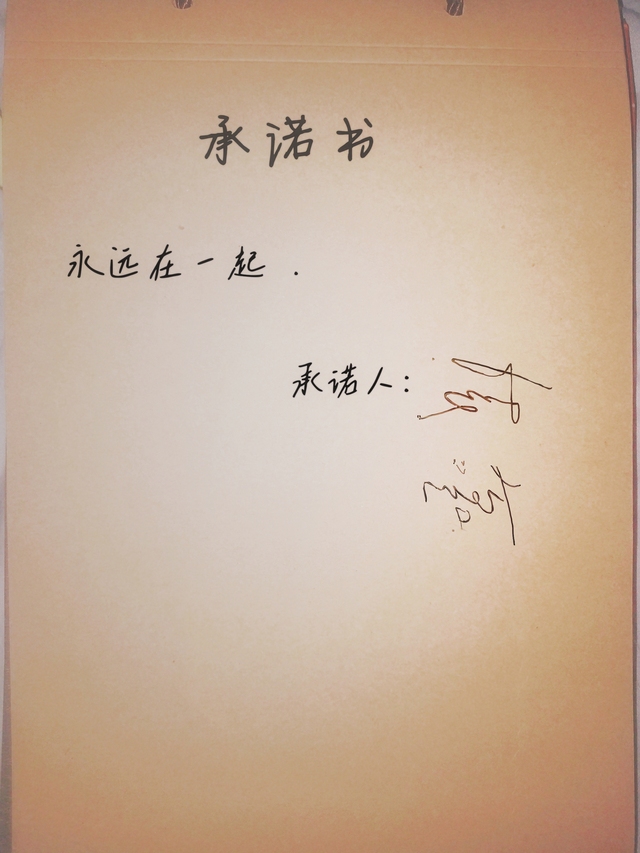 承诺书
永远在一起.
承诺人: